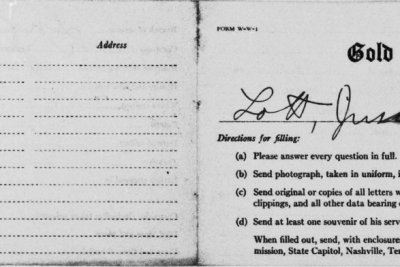 Address
FORM W-W-1
Gold
Lott,
Directions for filling:
(a) Please answer every question in full.
(b) Send photograph, taken in uniform, i
(c) Send original or copies of all letters w
clippings, and all other data bearing
(d) Send at least one souvenir of his serv
When filled out, send, with enclosure
mission, State Capitol, Nashville, Ten